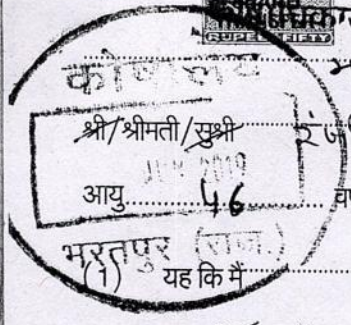 RUPEES FIFTY
कोषालय
श्री/श्रीमती/सुश्री
2019
आयु 46
भरतपुर (राज.)
(1) यह कि मैं